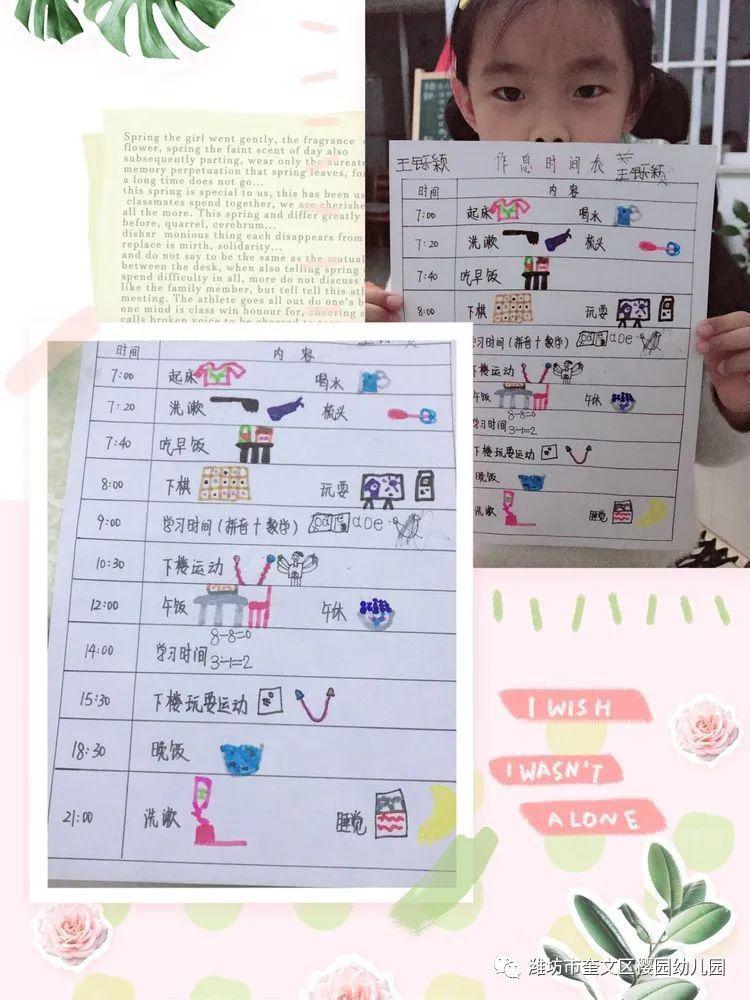 Spring the girl went gently, the fragrance
flower, spring the faint scent of day also
subsequently parting, wear only the aureate
memory perpetuation that spring leaves, for
a long time does not go...
this spring is special to us, this has been us
classmates spend together, we are cherished
all the more. This spring and differ greatly
before, quarrel, cerebrum...
dishar monious thing each disappears from
replace is mirth, solidarity...
and do not say to be the same as the mutual
between the desk, when also telling spring
spend difficulty in all, more do not discuss
like the family member, but tell tell this ath
meeting. The athlete goes all out do one's b
one mind is class win honour for, cheering s
王铄颖 作息时间表 王铄颖
时间 内容
7:00 起床 喝水
7:20 洗漱 梳头
7:40 吃早饭
8:00 下棋 玩耍
学习时间(拼音+数学) aoe
下楼运动
午饭 午休
8-8=0
学习时间 3-1=2
下楼玩耍运动
晚饭
洗漱 睡觉
时间 内容
7:00 起床 喝水
7:20 洗漱 梳头
7:40 吃早饭
8:00 下棋 玩耍
9:00 学习时间(拼音+数学) aoe
10:30 下楼运动
12:00 午饭 午休
8-8=0
14:00 学习时间 3-1=2
15:30 下楼玩耍运动
18:30 晚饭
21:00 洗漱 睡觉
I WISH
I WASN'T
ALONE
潍坊市奎文区樱园幼儿园